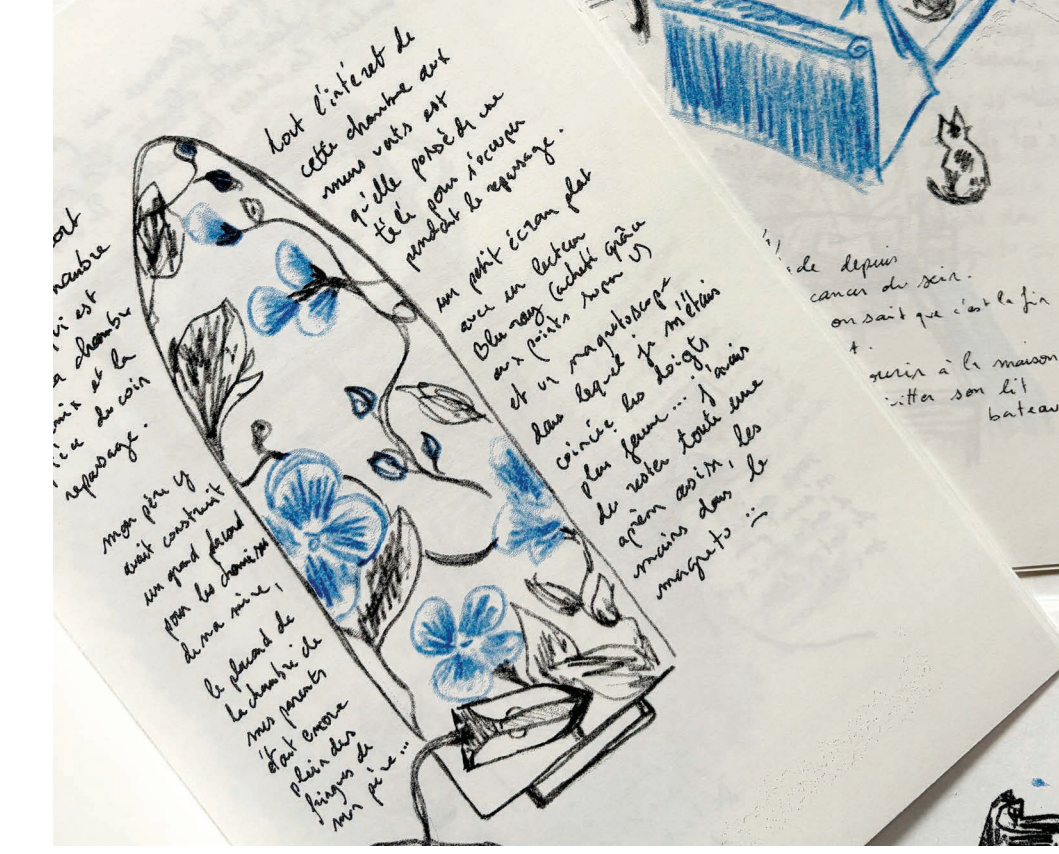 est
chambre
et la
du coin
repassage.
mon père y
avait construit
un grand placard
pour les chemises
de ma mère,
le placard de
la chambre de
mes parents
était encore
plein des
fringues de
mon père...
tout l'intéret de
cette chambre aux
murs verts est
qu'elle possède une
télé pour s'occuper
pendant le repassage.
un petit écran plat
avec un lecteur
Blu-ray (acheté grâce
aux points super U)
et un magnétoscope
dans lequel je m'étais
coincée les doigts
plus jeune... j'avais
du rester toute une
aprèm assise, les
mains dans le
magneto :(
depuis
cancer du sein.
on sait que c'est la fin
à la maison
son lit
bateau